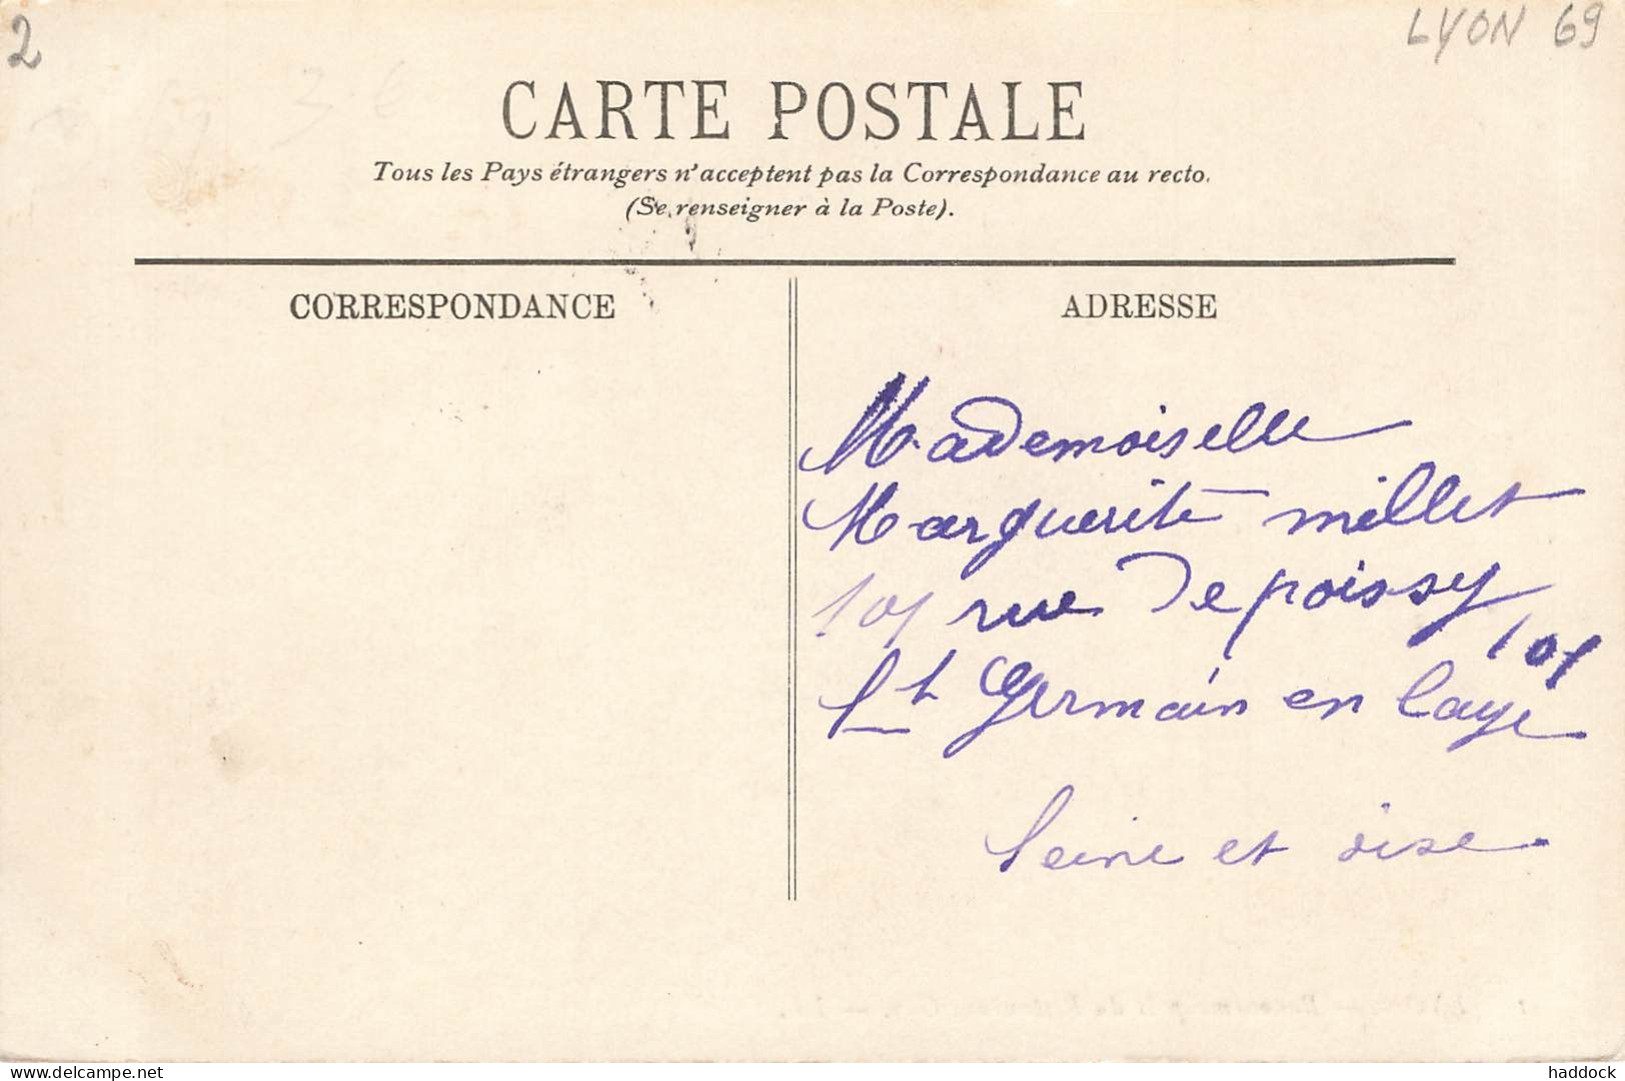 2
LYON 69
3 €
CARTE POSTALE
Tous les Pays étrangers n'acceptent pas la Correspondance au recto.
(Se renseigner à la Poste).
CORRESPONDANCE
ADRESSE
Mademoiselle
Marguerite millet
101 rue De poissy
101
St Germain en Laye
Seine et oise
delcampe.net
haddock